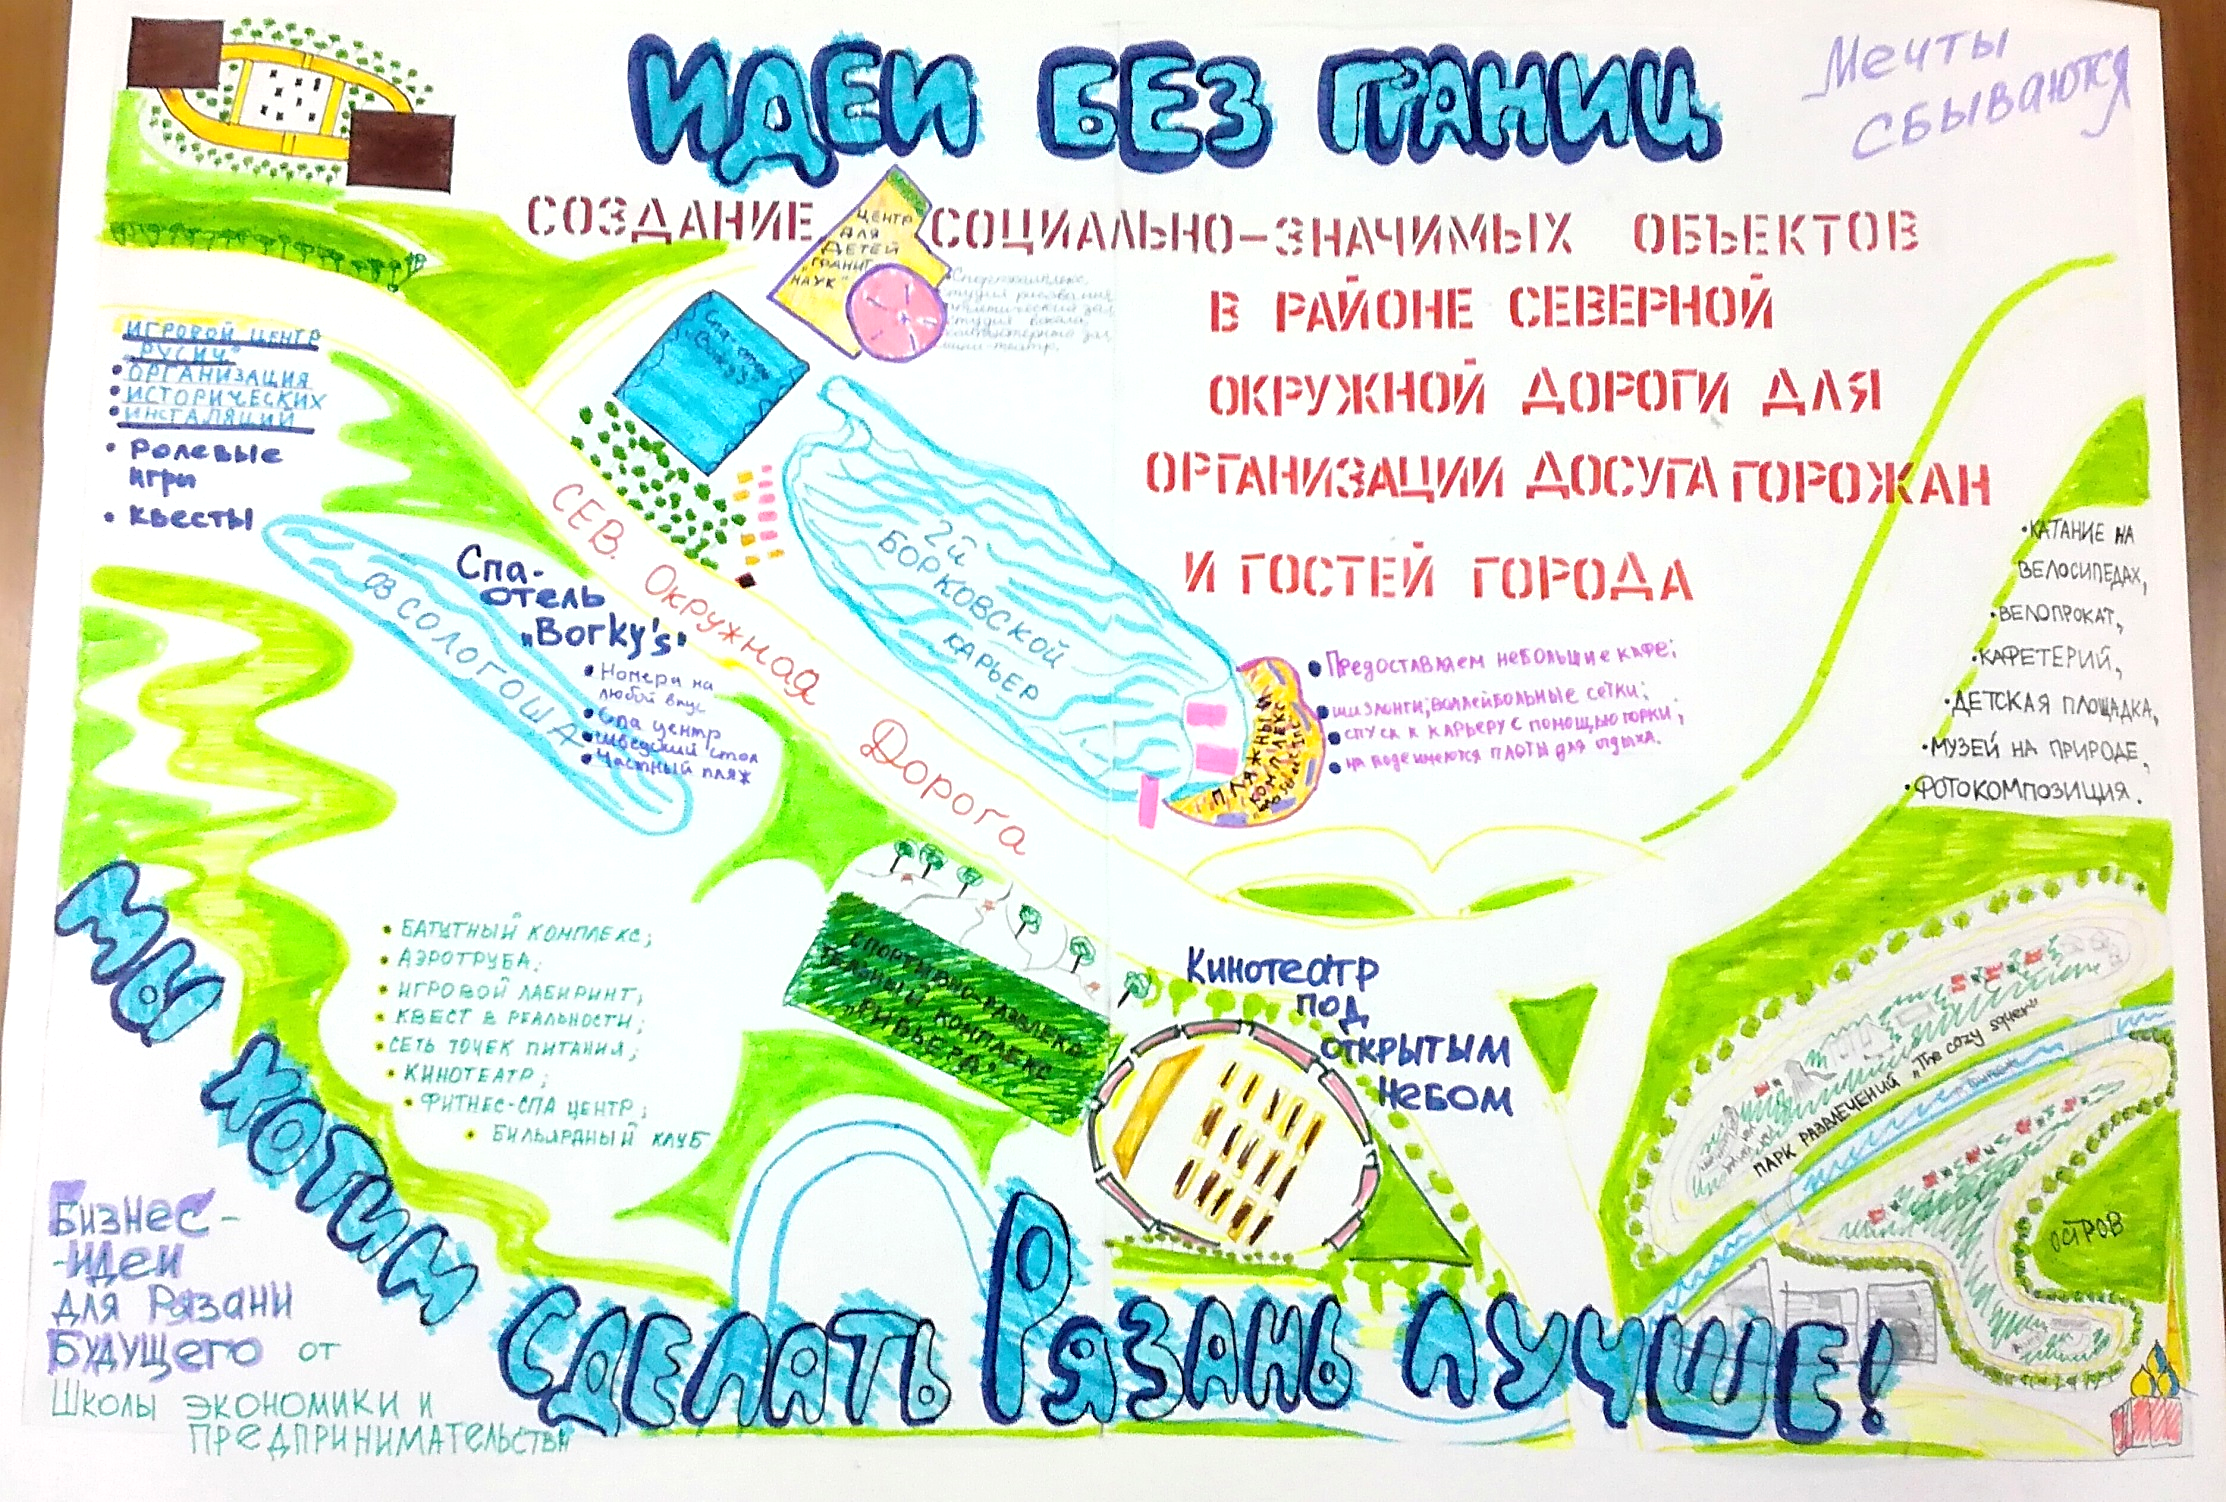 ИДЕИ БЕЗ ГРАНИЦ
Мечты
сбываются
СОЗДАНИЕ СОЦИАЛЬНО-ЗНАЧИМЫХ ОБЪЕКТОВ
В РАЙОНЕ СЕВЕРНОЙ
ОКРУЖНОЙ ДОРОГИ ДЛЯ
ОРГАНИЗАЦИИ ДОСУГА ГОРОЖАН
И ГОСТЕЙ ГОРОДА
ЦЕНТР
ДЛЯ
ДЕТЕЙ
„ГРАНИТ
НАУК"
Спорткомплекс,
студия рисования
студия вокала
мини-театр.
Спа-отель
ИГРОВОЙ ЦЕНТР
„РУСИЧ"
• ОРГАНИЗАЦИЯ
• ИСТОРИЧЕСКИХ
• ИНСТАЛЯЦИЙ
• Ролевые
игры
• Квесты
СЕВ. Окружная Дорога
2й
БОРКОВСКОЙ
КАРЬЕР
ОЗ СОЛОГОША
Спа-
отель
„Borky's"
• Номера на
любой вкус
• Спа центр
• Шведский стол
• Частный пляж
ПЛЯЖНЫЙ
КОМПЛЕКС
• Предоставляем небольшие кафе;
• шизлонги; воллейбольные сетки;
• спуск к карьеру с помощью горки;
• на воде имеются плоты для отдыха.
• КАТАНИЕ НА
ВЕЛОСИПЕДАХ,
• ВЕЛОПРОКАТ,
• КАФЕТЕРИЙ,
• ДЕТСКАЯ ПЛОЩАДКА,
• МУЗЕЙ НА ПРИРОДЕ,
• ФОТОКОМПОЗИЦИЯ.
• БАТУТНЫЙ КОМПЛЕКС;
• АЭРОТРУБА;
• ИГРОВОЙ ЛАБИРИНТ;
• КВЕСТ В РЕАЛЬНОСТИ;
• СЕТЬ ТОЧЕК ПИТАНИЯ;
• КИНОТЕАТР;
• ФИТНЕС-СПА ЦЕНТР;
• БИЛЬЯРДНЫЙ КЛУБ
СПОРТИВНО-РАЗВЛЕКА
ТЕЛЬНЫЙ КОМПЛЕКС
„РИВЬЕРА"
Кинотеатр
под
открытым
небом
ПАРК РАЗВЛЕЧЕНИЙ „The cozy squer"
ОСТРОВ
МЫ ХОТИМ СДЕЛАТЬ РЯЗАНЬ ЛУЧШЕ!
Бизнес-
-идеи
для Рязани
Будущего от
Школы экономики и
предпринимательства